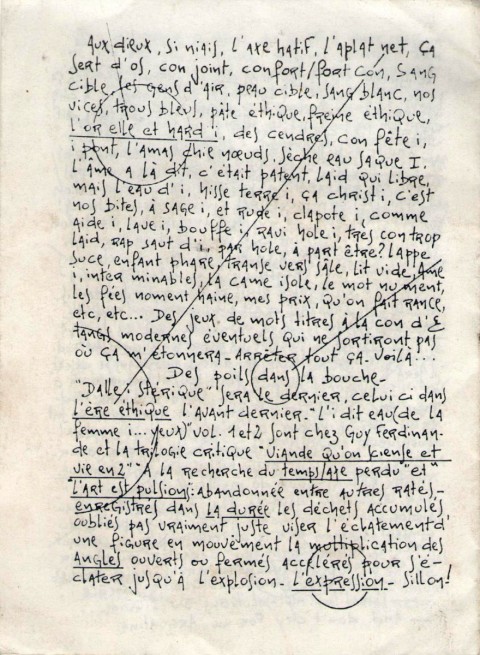 Aux dieux, si niais, l'axe hatif, l'aplat net, ça
sert d'os, con joint, confort/fort con, sang
cible, les gens d'air, peau cible, sang blanc, nos
vices, trous bleus, pâte éthique, freine éthique,
l'or elle et hard i, des cendres, con fête i,
i pont, l'amas chie nœuds. Sèche eau saque I.
L'âme a là dit, c'était patent, laid qui libre,
mais l'eau d'i, hisse terre i, ça christ i, c'est
nos bites, à sage i, et rude i, clapote i, comme
aide i, lave i, bouffe i, ravi hole i, très con trop
laid, rap saut d'i, par hole, à part être? lappe
suce, enfant phare, transe vers sale, lit vide, âme
i, inter minables, la came isole, le mot nu ment,
les fées noment haine, mes prix, qu'on fait rance,
etc, etc... Des jeux de mots titres à la con d'É
tangs modernes éventuels qui ne sortiront pas
où ça m'étonnera - arrêter tout ça. Voilà...
Des poils dans la bouche -
"Dalle i stérique" sera le dernier, celui ci dans
l'ère éthique l'avant dernier - "L'i dit eau (de la
femme i... yeux)" vol. 1 et 2 sont chez Guy Ferdinan-
de et la trilogie critique "Viande qu'on sciense et
vie en 2" "À la recherche du temps/axe perdu" et
"l'art est pulsion": abandonnée entre autres ratés -
enregistrés dans la durée les déchets accumulés
oubliés pas vraiment juste viser l'éclatement d'
une figure en mouvement la multiplication des
angles ouverts ou fermés accélérés pour s'é-
clater jusqu'à l'explosion - l'expression - sillon!